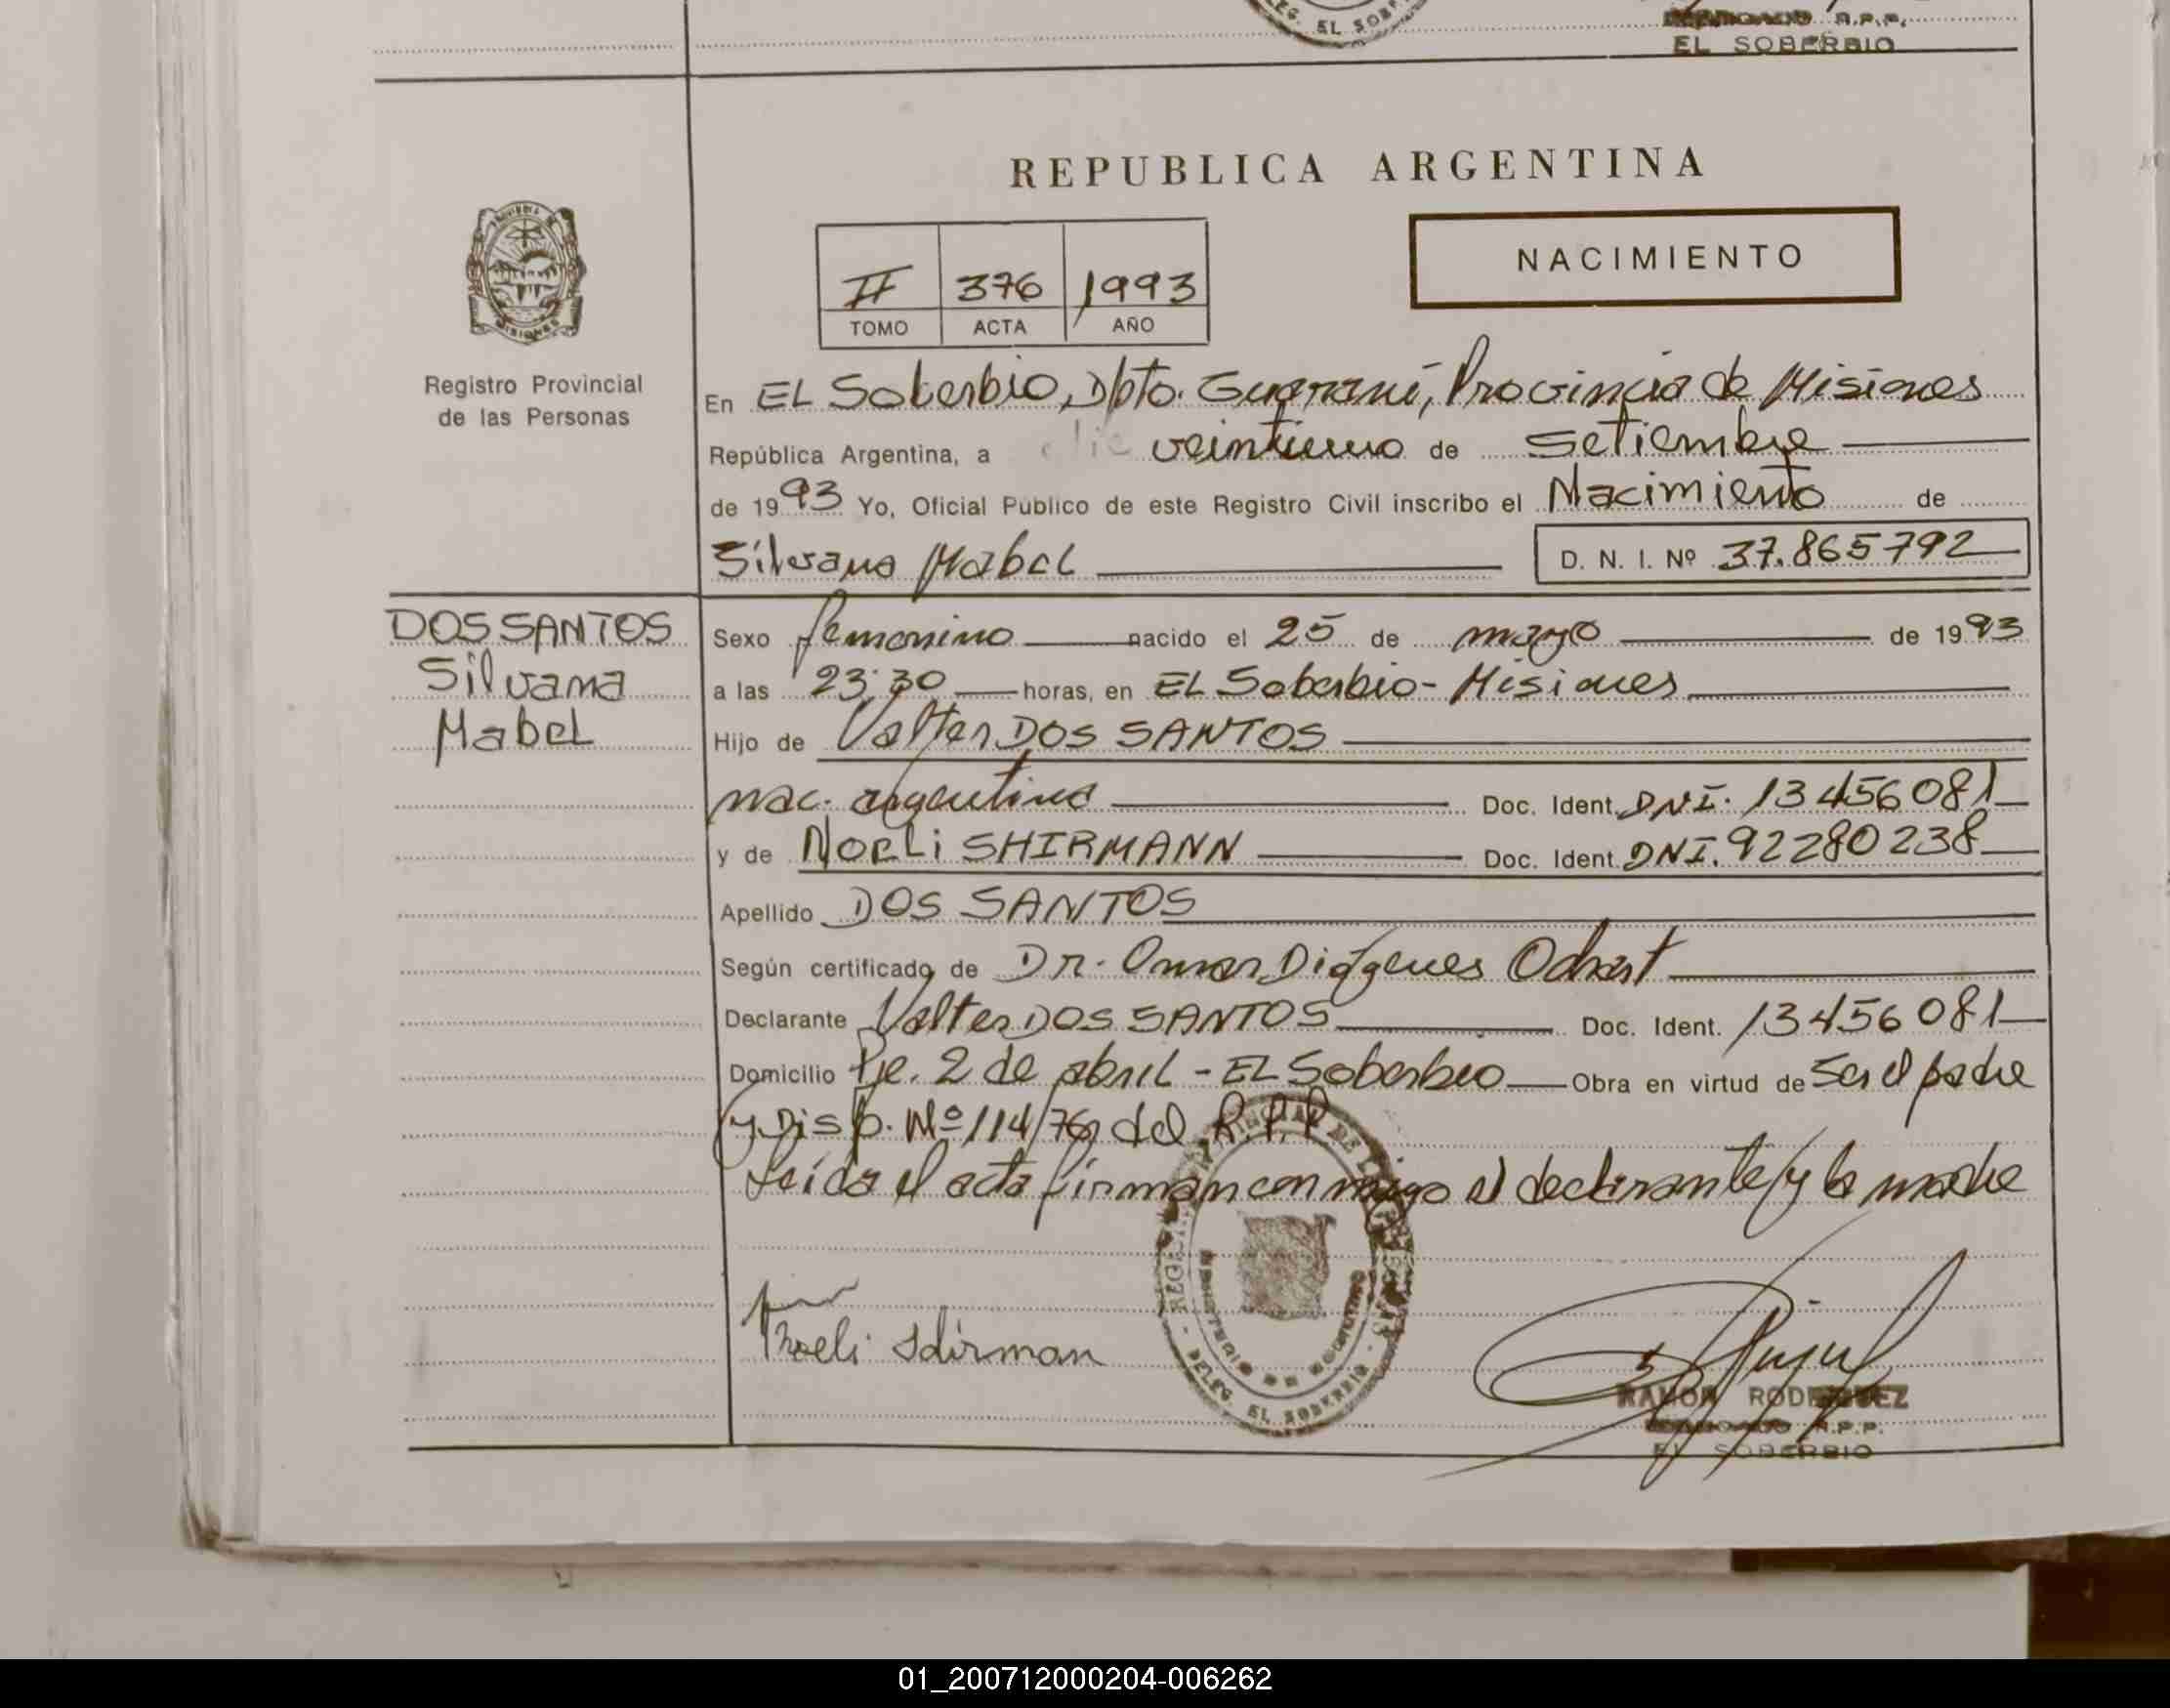 DELEG. EL SOBERBIO
R.P.P.
EL SOBERBIO
REPUBLICA ARGENTINA
NACIMIENTO
II 376 1993
TOMO ACTA AÑO
Registro Provincial
de las Personas
En EL Soberbio, Dpto. Guaraní, Provincia de Misiones
República Argentina, a veintiuno de Setiembre
de 1993 Yo, Oficial Público de este Registro Civil inscribo el Nacimiento de
Silvana Mabel D. N. I. Nº 37.865792
DOS SANTOS
Silvana
Mabel
Sexo femenino nacido el 25 de mayo de 1993
a las 23:30 horas, en EL Soberbio - Misiones
Hijo de Valter DOS SANTOS
nac. argentina Doc. Ident. DNI. 13456081
y de NOELi SHIRMANN Doc. Ident. DNI. 92280238
Apellido DOS SANTOS
Según certificado de Dr. Omar Diógenes
Declarante Valter DOS SANTOS Doc. Ident. 13456081
Domicilio Pje. 2 de abril - EL Soberbio Obra en virtud de Ser el padre
y Disp. Nº 114/76 del R.P.P.
Leída el acta firman conmigo el declarante y la madre
Noeli Shirman
DELEG. EL SOBERBIO
RAMON RODRIGUEZ
R.P.P.
EL SOBERBIO
01_200712000204-006262